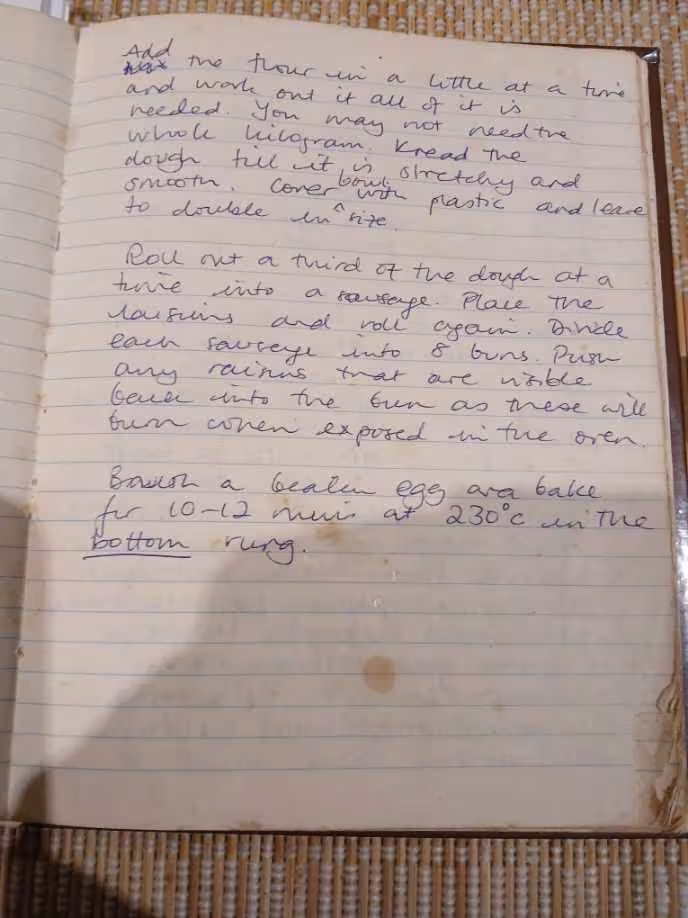 Add
the flour in a little at a time
and work out it all of it is
needed. You may not need the
whole kilogram. Knead the
dough till it is stretchy and
smooth. Cover bowl with plastic and leave
to double in size.
Roll out a third of the dough at a
time into a sausage. Place the
raisins and roll again. Divide
each sausage into 8 buns. Push
any raisins that are visible
back into the bun as these will
burn when exposed in the oven.
Brush a beaten egg and bake
for 10-12 mins at 230°c in the
bottom rung.